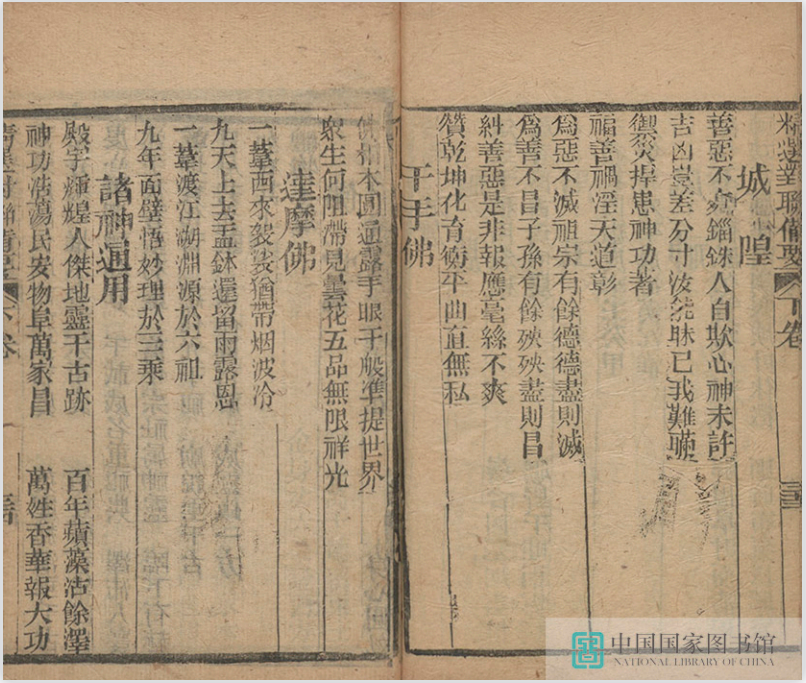 精選對聯備要 下卷 三
城隍
善惡不爽錙銖人自欺心神未許
吉凶豈差分寸汝能昧已我難瞞
禦災捍患神功著
福善禍淫天道彰
為惡不滅祖宗有餘德德盡則滅
為善不昌子孫有餘殃殃盡則昌
糾善惡是非報應毫絲不爽
贊乾坤化育衡平曲直無私
千手佛
佛相本圓通露手眼千般準提世界
衆生何阻滯見曇花五品無限祥光
達摩佛
一葦西來袈裟猶帶烟波冷
九天上去盂鉢還留雨露恩
一葦渡江溯淵源於六祖
九年面壁悟妙理於三乘
諸神通用
殿宇輝煌人傑地靈千古跡 百年蘋藻沾餘澤
神功浩蕩民安物阜萬家昌 萬姓香華報大功
中国国家图书馆
NATIONAL LIBRARY OF CHINA